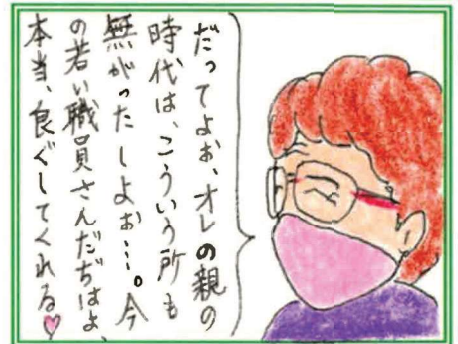 だってよぉ、オレの親の
時代は、こういう所も
無がったしよぉ…。今
の若い職員さんだぢはよ、
本当、良ぐしてくれる♡